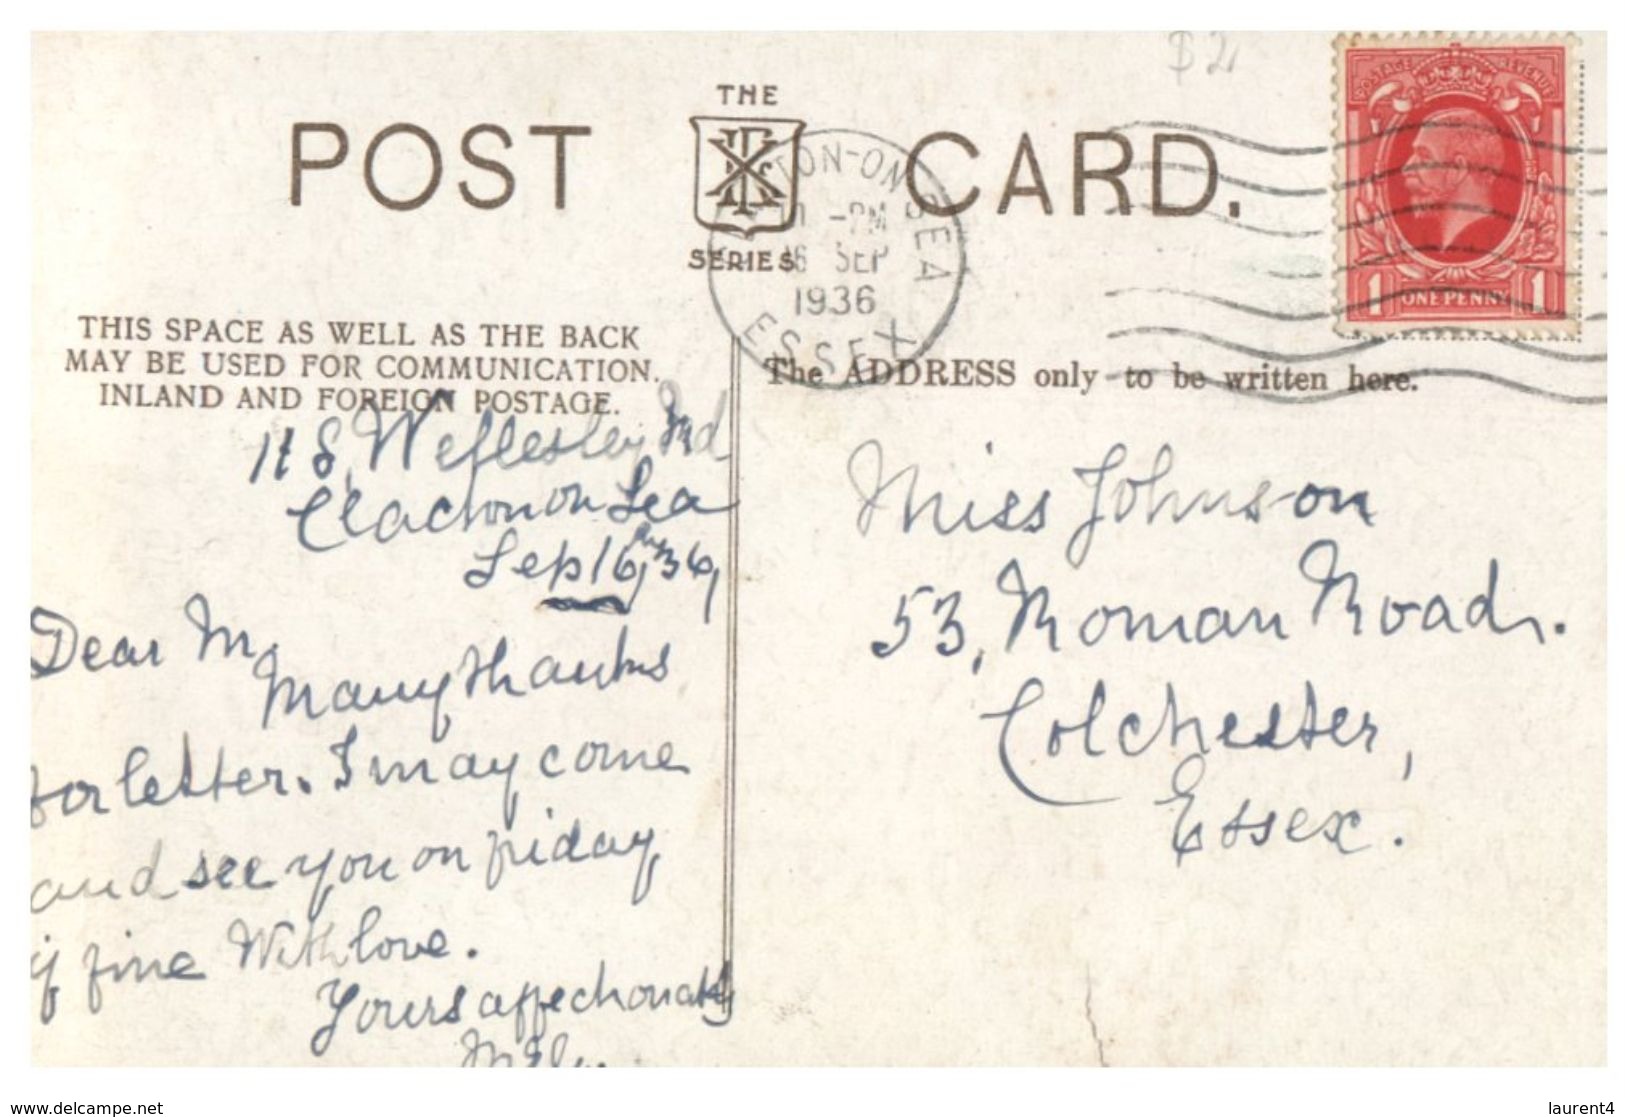 $2
THE
POST CARD.
SERIES
TON-ON SEA
-PM
16 SEP
1936
ESSEX
POSTAGE REVENUE
1 ONE PENNY 1
THIS SPACE AS WELL AS THE BACK
MAY BE USED FOR COMMUNICATION.
INLAND AND FOREIGN POSTAGE.
The ADDRESS only to be written here.
118, Wellesley Rd
Clacton on Sea
Sep 16, 36,
Dear M
Many thanks
for letter. I may come
and see you on friday,
if fine With love.
Yours affectionately
Miss Johnson
53, Roman Road.
Colchester,
Essex.
www.delcampe.net
laurent4